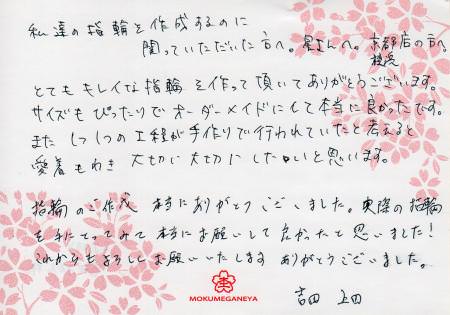 私達の指輪を作成するのに
関っていただいた方へ。星さんへ。京都店の方へ。
横浜
とてもキレイな指輪を作って頂いてありがとうございます。
サイズもぴったりでオーダーメイドにして本当に良かったです。
また1つ1つの工程が手作りで行われていたと考えると
愛着もわき 大切に大切にしたいと思います。
指輪のご作成 本当にありがとうございました。実際の指輪
を手にとってみて本当にお願いして良かったと思いました!
これからもよろしくお願いいたします ありがとうございました。
吉田 上田
MOKUMEGANEYA